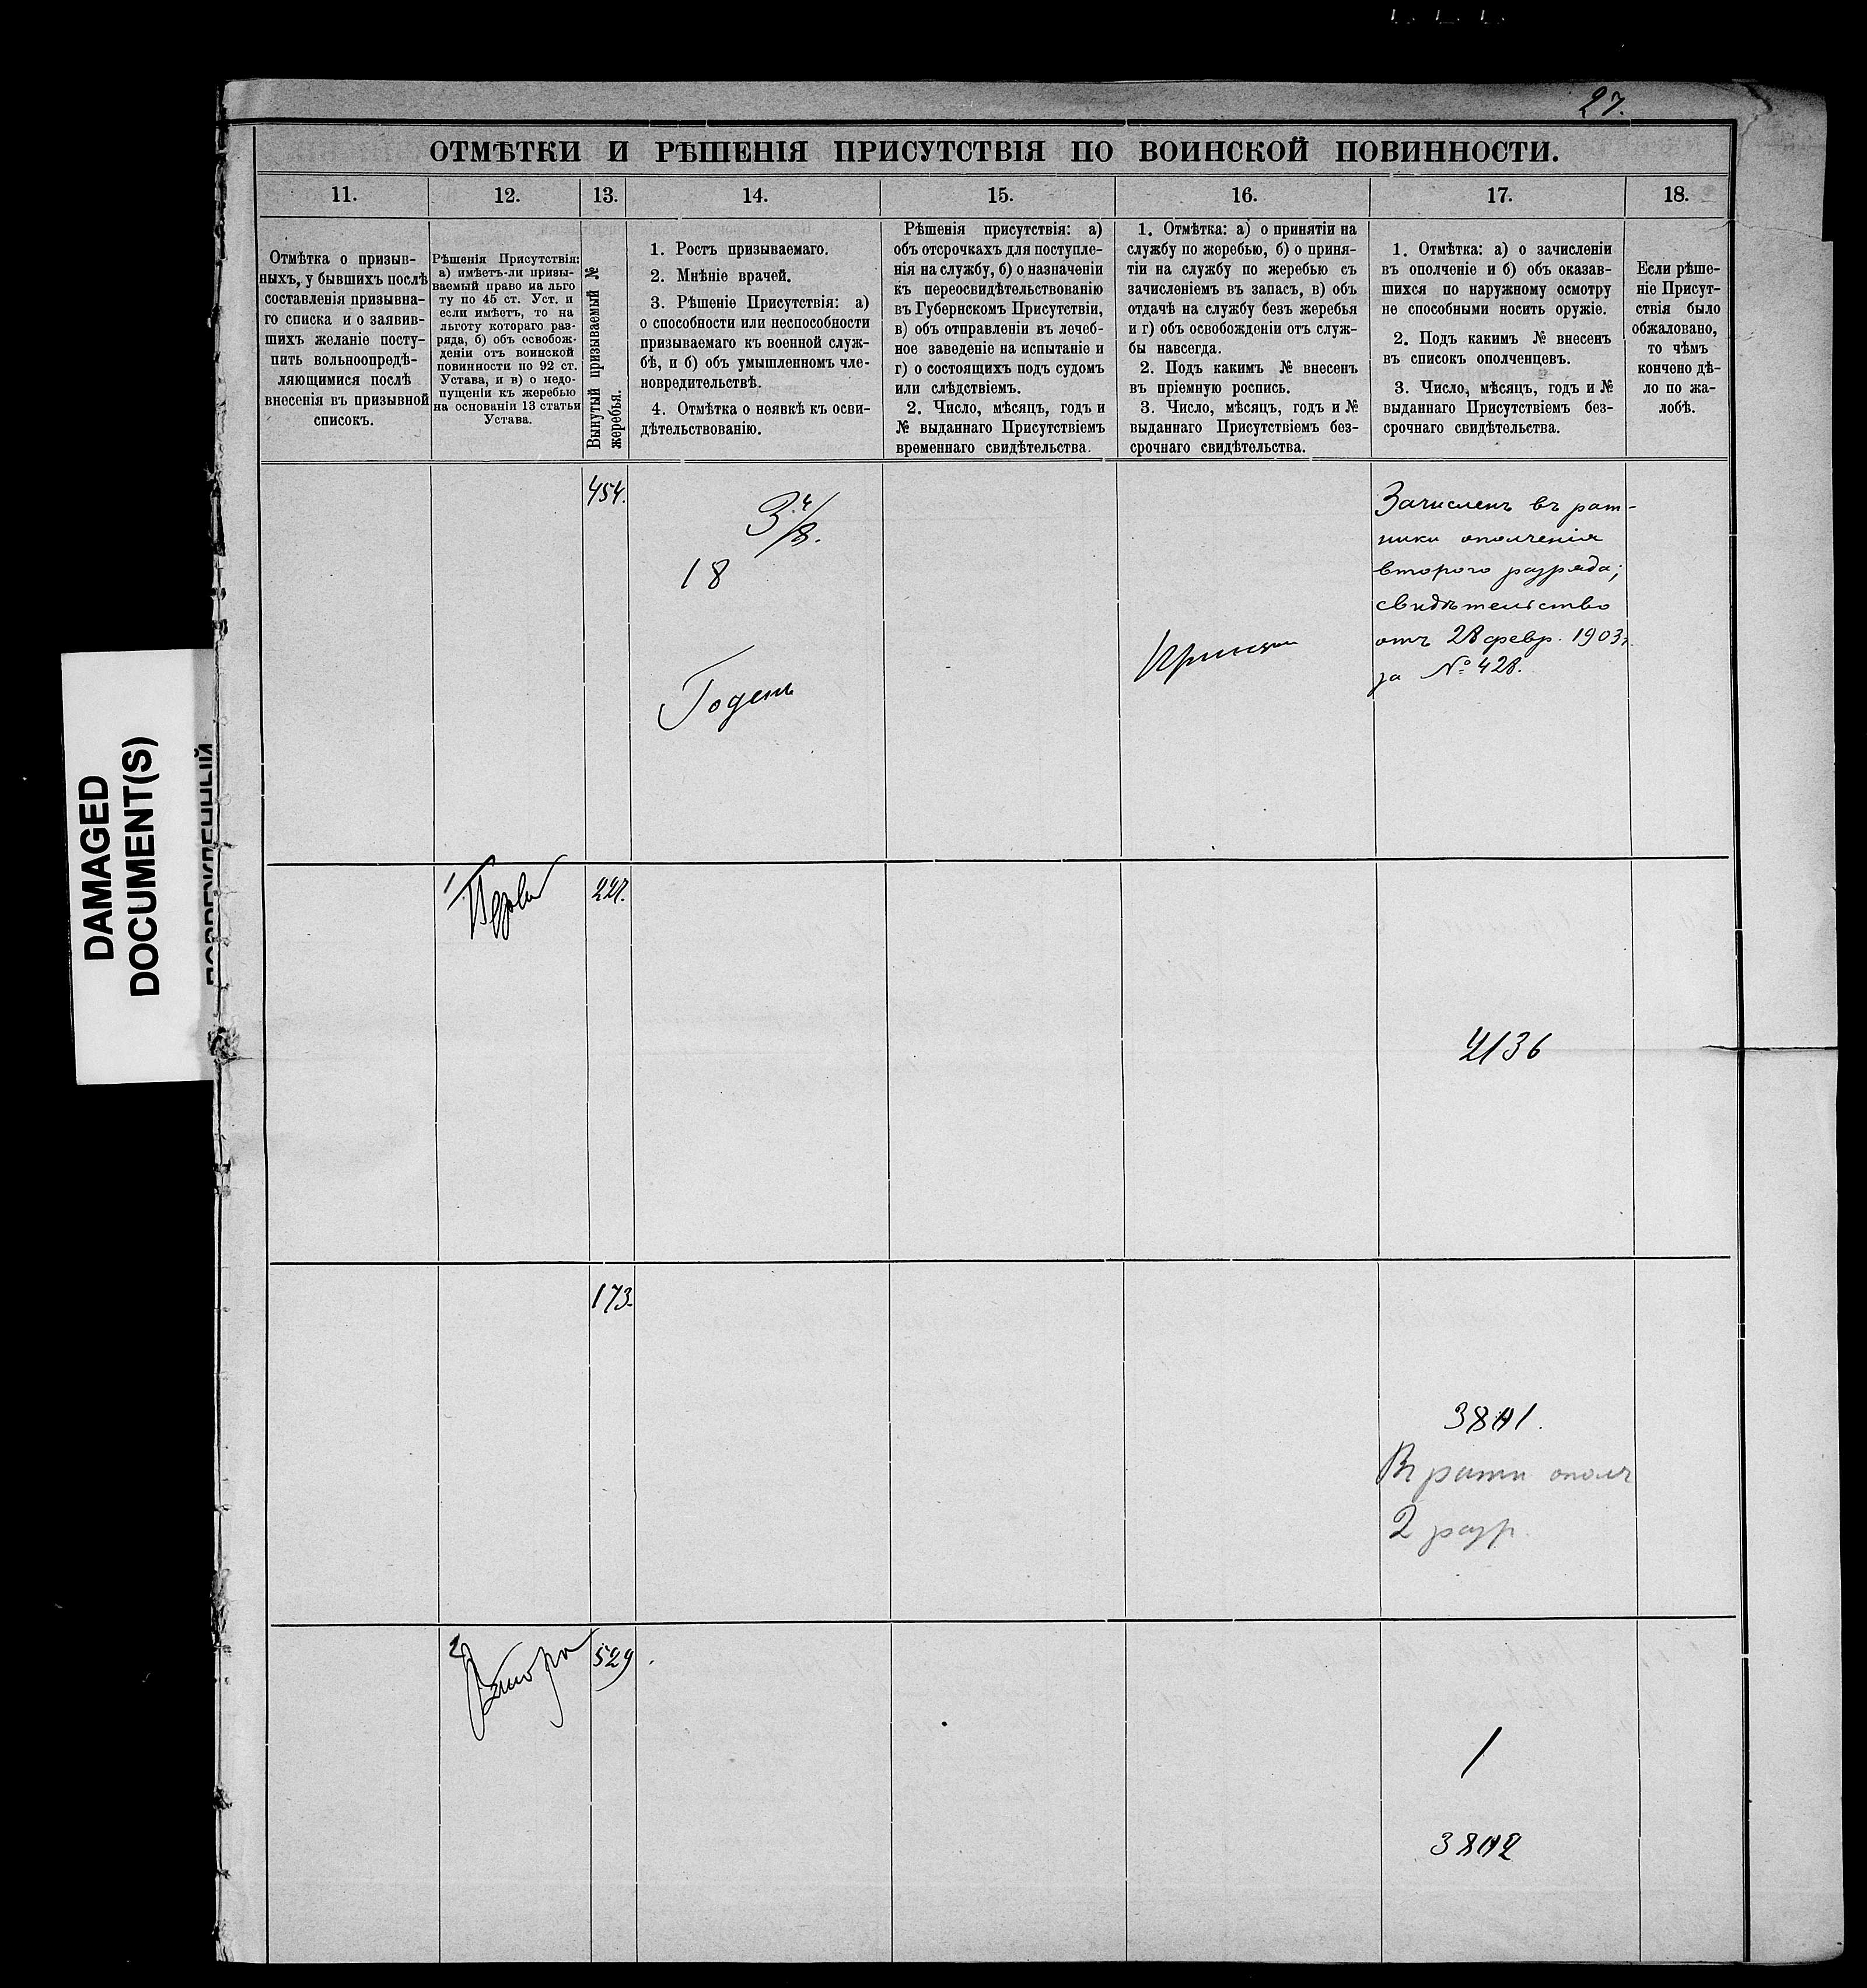 27.
ОТМѢТКИ И РѢШЕНІЯ ПРИСУТСТВІЯ ПО ВОИНСКОЙ ПОВИННОСТИ.
11.
12.
13.
14.
15.
16.
17.
18.
Отмѣтка о призыв-
ныхъ, у бывшихъ послѣ
составленія призывна-
го списка и о заявив-
шихъ желаніе посту-
пить вольноопредѣ-
ляющимися послѣ
внесенія въ призывной
списокъ.
Рѣшенія Присутствія:
а) имѣетъ-ли призы-
ваемый право на льго
ту по 45 ст. Уст. и
если имѣетъ, то на
льготу котораго раз-
ряда, б) объ освобож-
деніи отъ воинской
повинности по 92 ст.
Устава, и в) о недо-
пущеніи къ жеребью
на основаніи 13 статьи
Устава.
Вынутый призываемый №
жеребья.
1. Ростъ призываемаго.
2. Мнѣніе врачей.
3. Рѣшеніе Присутствія: а)
о способности или неспособности
призываемаго къ военной служ-
бѣ, и б) объ умышленномъ чле-
новредительствѣ.
4. Отмѣтка о неявкѣ къ осви-
дѣтельствованію.
Рѣшенія присутствія: а)
объ отсрочкахъ для поступле-
нія на службу, б) о назначеніи
къ переосвидѣтельствованію
въ Губернскомъ Присутствіи,
в) объ отправленіи въ лечеб-
ное заведеніе на испытаніе и
г) о состоящихъ подъ судомъ
или слѣдствіемъ.
2. Число, мѣсяцъ, годъ и
№ выданнаго Присутствіемъ
временнаго свидѣтельства.
1. Отмѣтка: а) о принятіи на
службу по жеребью, б) о приня-
тіи на службу по жеребью съ
зачисленіемъ въ запасъ, в) объ
отдачѣ на службу безъ жеребья
и г) объ освобожденіи отъ служ-
бы навсегда.
2. Подъ какимъ № внесенъ
въ пріемную роспись.
3. Число, мѣсяцъ, годъ и №
выданнаго Присутствіемъ без-
срочнаго свидѣтельства.
1. Отмѣтка: а) о зачисленіи
въ ополченіе и б) объ оказав-
шихся по наружному осмотру
не способными носить оружіе.
2. Подъ какимъ № внесенъ
въ списокъ ополченцевъ.
3. Число, мѣсяцъ, годъ и №
выданнаго Присутствіемъ без-
срочнаго свидѣтельства.
Если рѣше-
ніе Присут-
ствія было
обжаловано,
то чѣмъ
кончено дѣ-
ло по жа-
лобѣ.
454.
3 4/8.
18
Годенъ
Зачисленъ въ рат-
ники ополченія
второго разряда;
свидѣтельство
отъ 28 февр. 1903 г.
за № 428.
1
227.
173.
Въ ратн ополч
2 разр.
2
529
1
DAMAGED
DOCUMENT(S)
ПОВРЕЖДЕННЫЙ